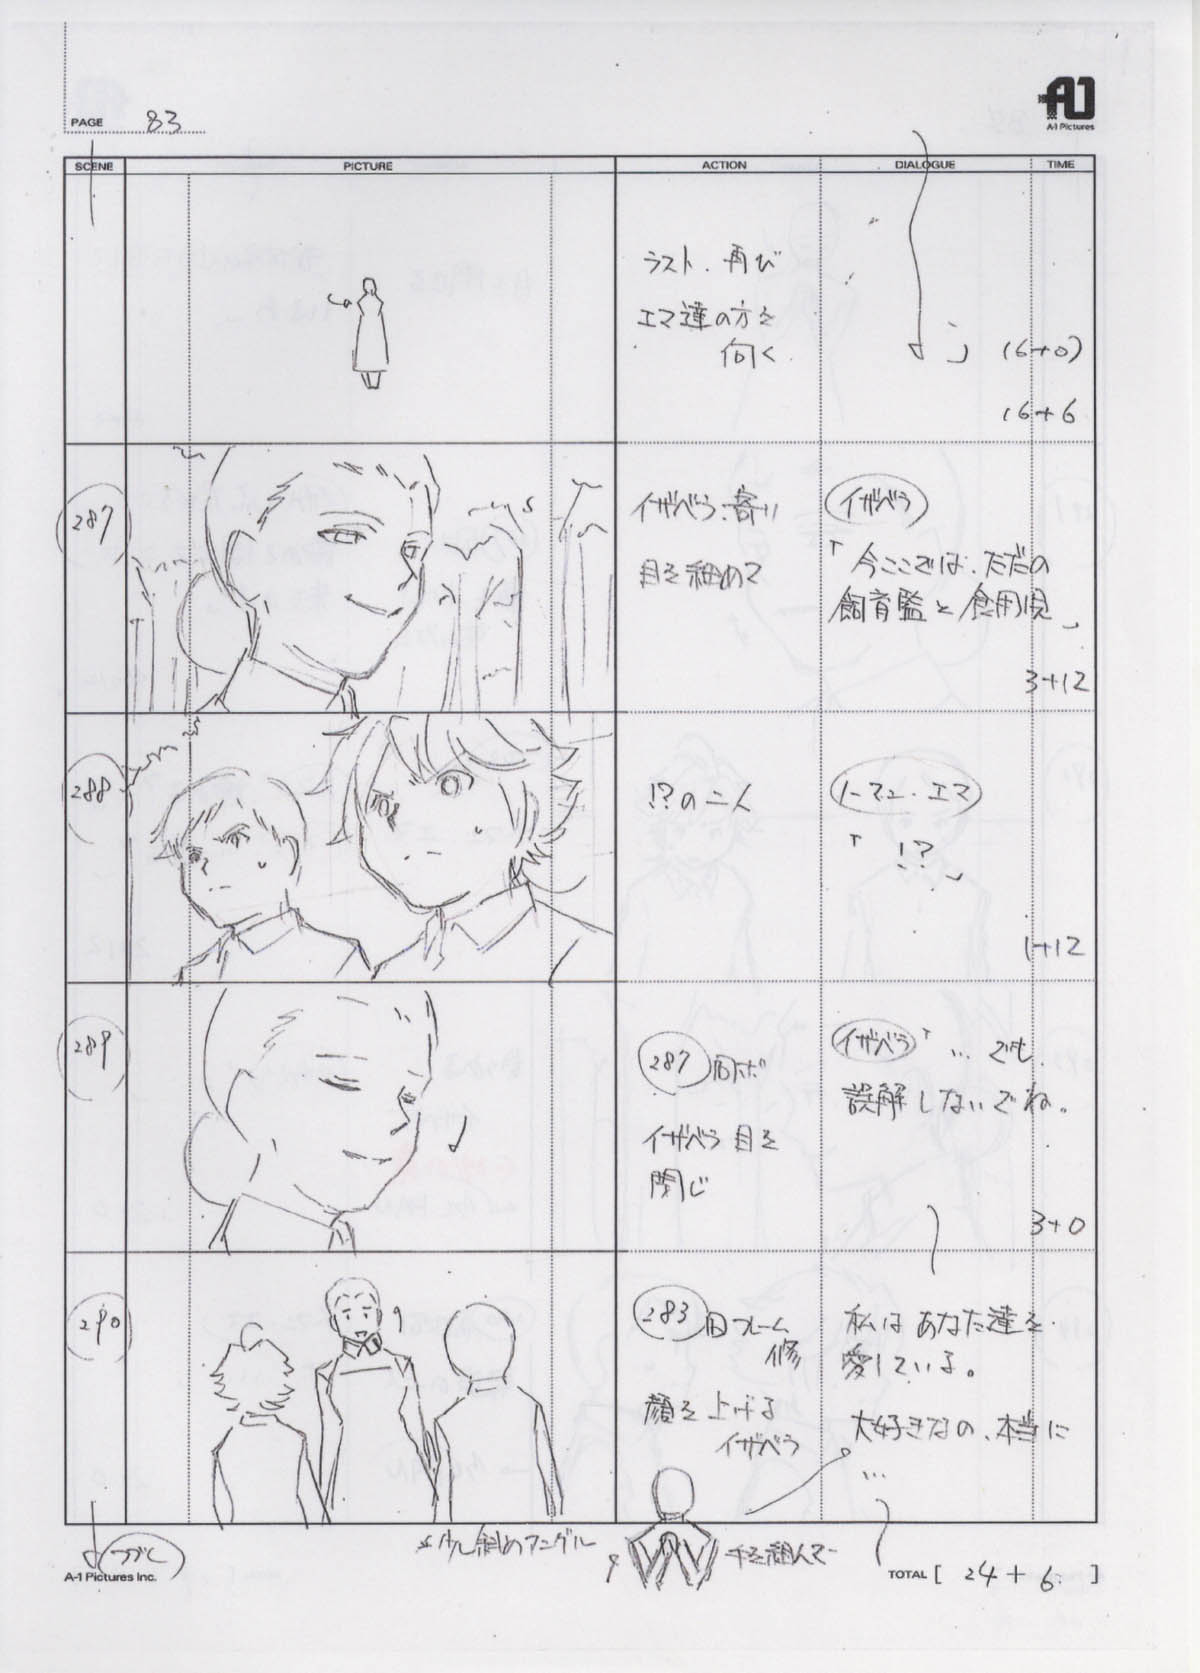 PAGE 83
A-1 Pictures
SCENE PICTURE ACTION DIALOGUE TIME
ラスト、再び
エマ達の方を
向く
」 (6+0)
16+6
287
イザベラ、寄り
目を細めて
イザベラ
「今ここでは、ただの
飼育監と食用児」
3+12
288
!?の二人
ノーマン・エマ
「!?」
1+12
289
287 同ポ
イザベラ 目を
閉じ
イザベラ「…でも、
誤解しないでね。
3+0
290
283 同フレーム
修
顔を上げる
イザベラ
私はあなた達を
愛している。
大好きなの、本当に
…
つづく
少し斜めアングル
手を組んで
A-1 Pictures Inc.
TOTAL [ 24 + 6 ]